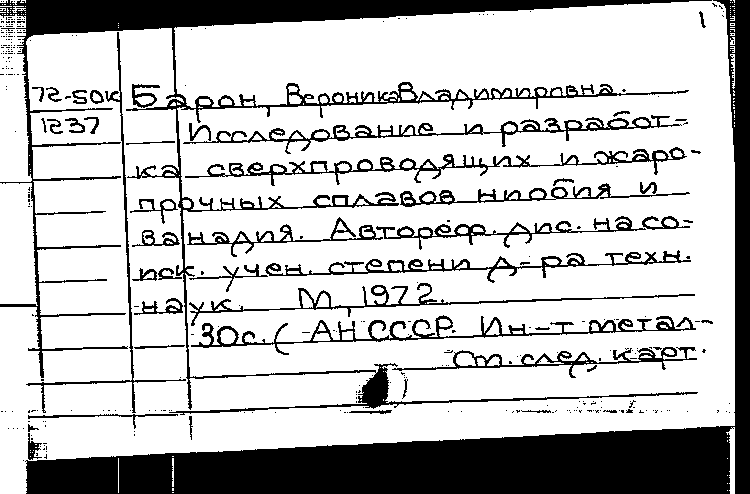 1
72-50к Барон, Вероника Владимировна.
1237 Исследование и разработ-
ка сверхпроводящих и жаро-
прочных сплавов ниобия и
ванадия. Автореф. дис. на со-
иск. учен. степени д-ра техн.
наук. М., 1972.
30с. (АН СССР. Ин-т метал-
См. след. карт.